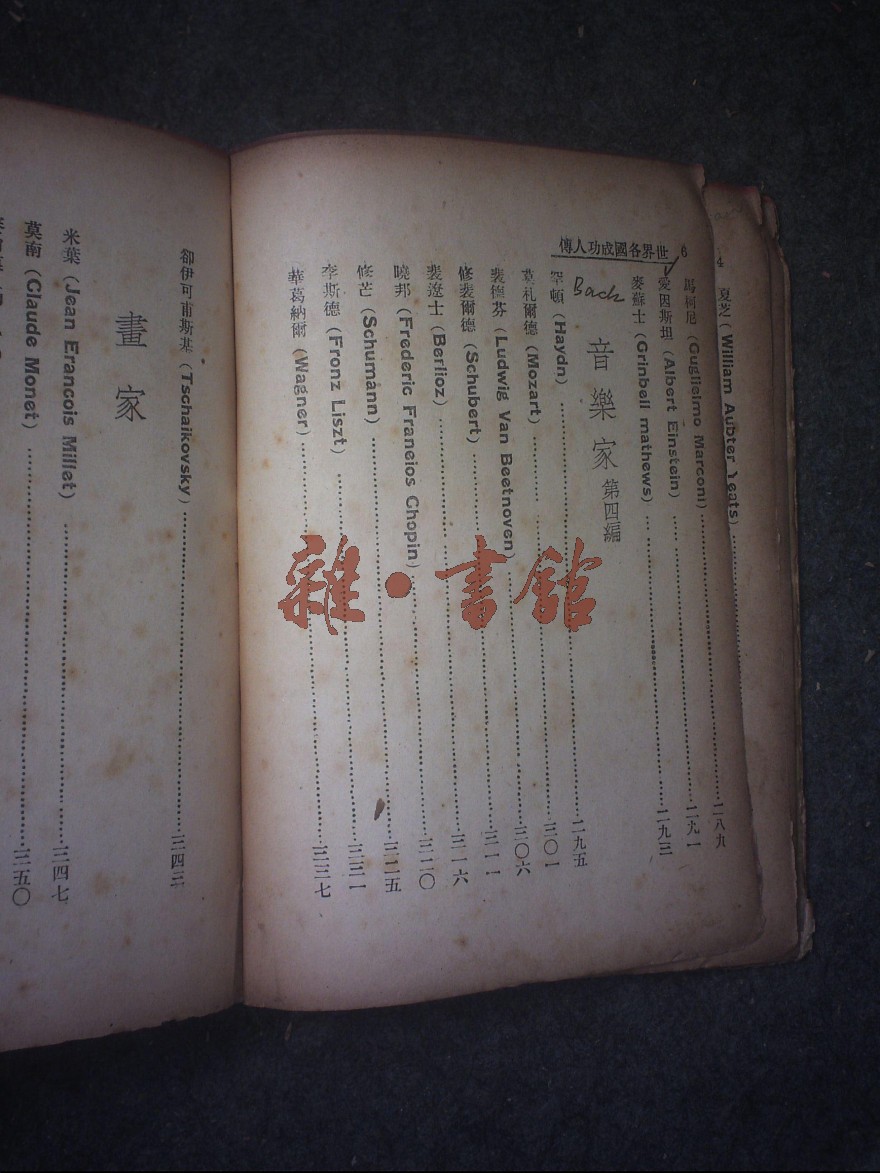 世界各國成功人傳 6
4
夏芝 (William Aubter Yeats)
馬柯尼 (Guglielmo Marconi) 二八九
愛因斯坦 (Albert Einstein) 二九一
麥蘇士 (Grinbell mathews) 二九三
音樂家 第四編
Bach
罕頓 (Haydn) 二九五
莫札爾德 (Mozart) 三〇一
裴德芬 (Ludwig Van Beetnoven) 三〇六
修裴爾德 (Schubert) 三一一
裴遼士 (Berlioz) 三一六
曉邦 (Frederic Franeios Chopin) 三二〇
修芒 (Schumann) 三二五
李斯德 (Fronz Liszt) 三三一
華葛納爾 (Wagner) 三三七
郤伊可甫斯基 (Tschaikovsky) 三四三
畫家
米葉 (Jean Erancois Millet) 三四七
莫南 (Claude Monet) 三五〇
雜·書館